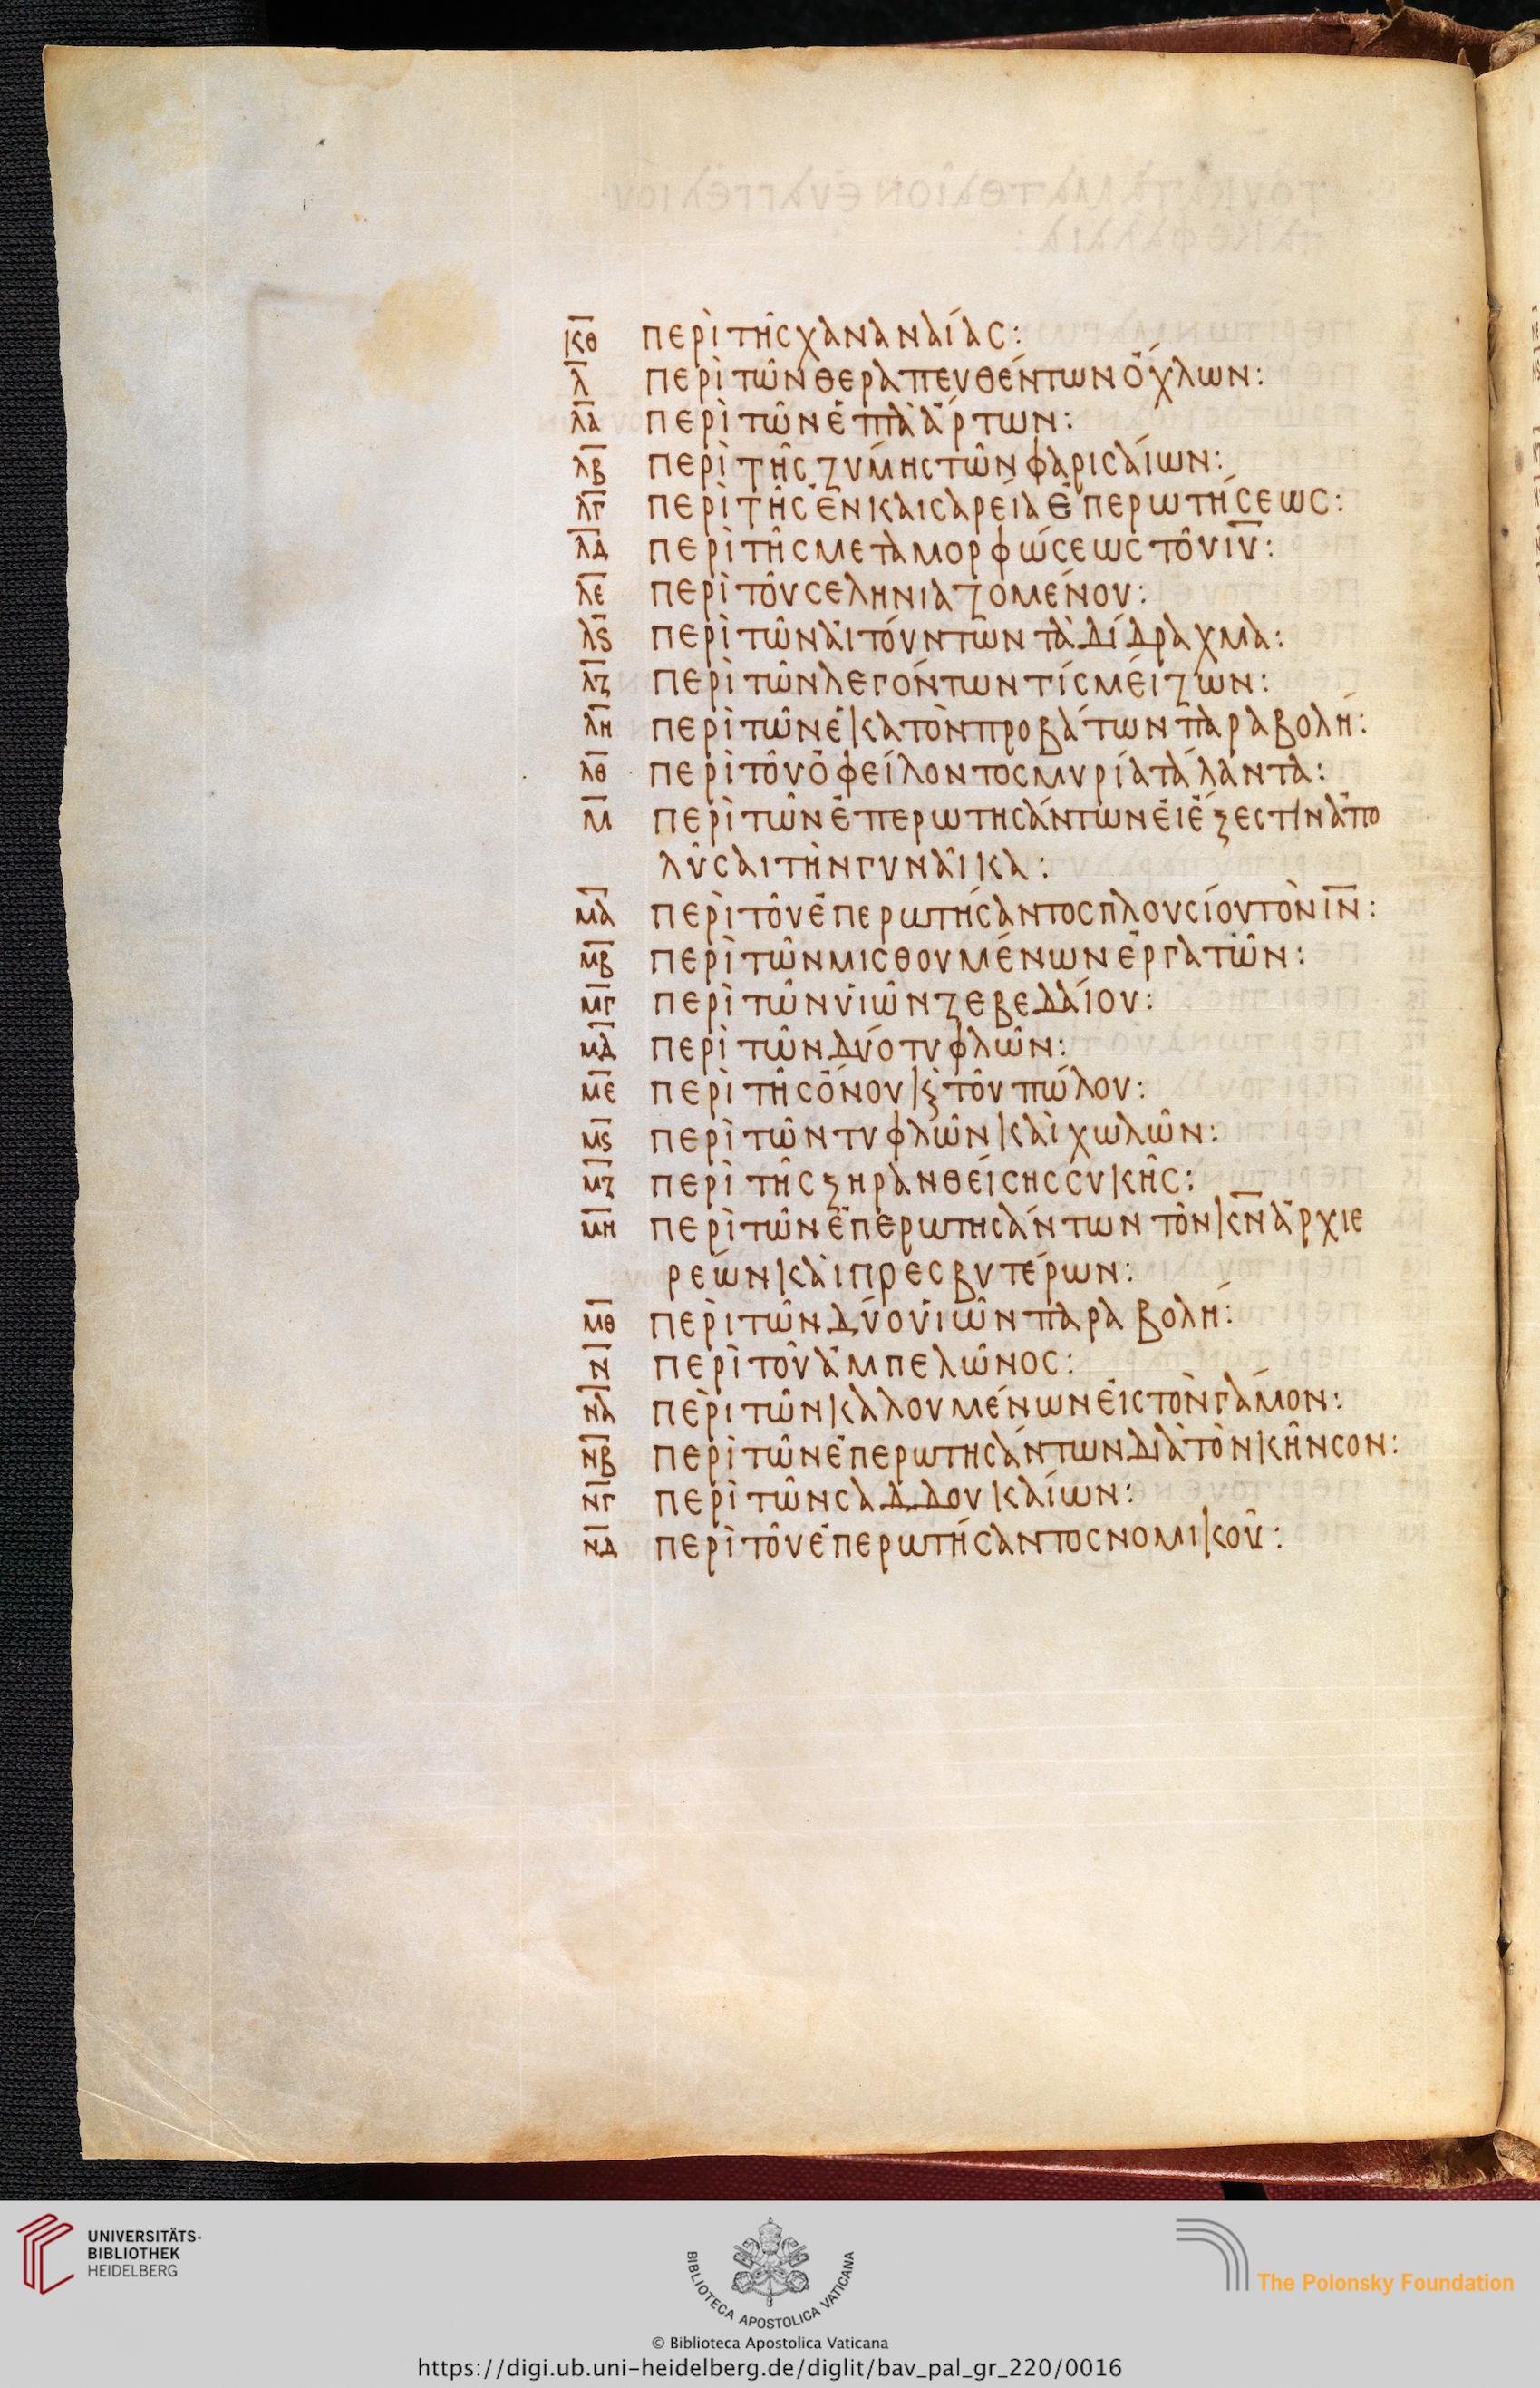 κθ περὶ τῆς χαναναίας:
λ περὶ τῶν θεραπευθέντων ὄχλων:
λα περὶ τῶν ἑπτὰ ἄρτων:
λβ περὶ τῆς ζύμης τῶν φαρισαίων:
λγ περὶ τῆς ἐν καισαρεία ἐπερωτήσεως:
λδ περὶ τῆς μεταμορφώσεως τοῦ ιυ:
λε περὶ τοῦ σεληνιαζομένου:
λϛ περὶ τῶν αἰτούντων τὰ δίδραχμα:
λζ περὶ τῶν λεγόντων τίς μείζων:
λη περὶ τῶν ἑκατὸν προβάτων παραβολή:
λθ περὶ τοῦ ὀφείλοντος μυρία τάλαντα:
μ περὶ τῶν ἐπερωτησάντων εἰ ἔξεστιν ἀπο
λῦσαι τὴν γυναῖκα:
μα περὶ τοῦ ἐπερωτήσαντος πλουσίου τὸν ιν:
μβ περὶ τῶν μισθουμένων ἐργατῶν:
μγ περὶ τῶν υἱῶν ζεβεδαίου:
μδ περὶ τῶν δύο τυφλῶν:
με περὶ τῆς ὄνου ϗ τοῦ πώλου:
μϛ περὶ τῶν τυφλῶν καὶ χωλῶν:
μζ περὶ τῆς ξηρανθείσης συκῆς:
μη περὶ τῶν ἐπερωτησάντων τὸν κν ἀρχιε
ρέων καὶ πρεσβυτέρων:
μθ περὶ τῶν δύο υἱῶν παραβολή:
ν περὶ τοῦ ἀμπελῶνος:
να περὶ τῶν καλουμένων εἰς τὸν γάμον:
νβ περὶ τῶν ἐπερωτησάντων διὰ τὸν κῆνσον:
νγ περὶ τῶν σαδδουκαίων:
νδ περὶ τοῦ ἐπερωτήσαντος νομικοῦ:
UNIVERSITÄTS-
BIBLIOTHEK
HEIDELBERG
BIBLIOTECA APOSTOLICA VATICANA
The Polonsky Foundation
© Biblioteca Apostolica Vaticana
https://digi.ub.uni-heidelberg.de/diglit/bav_pal_gr_220/0016